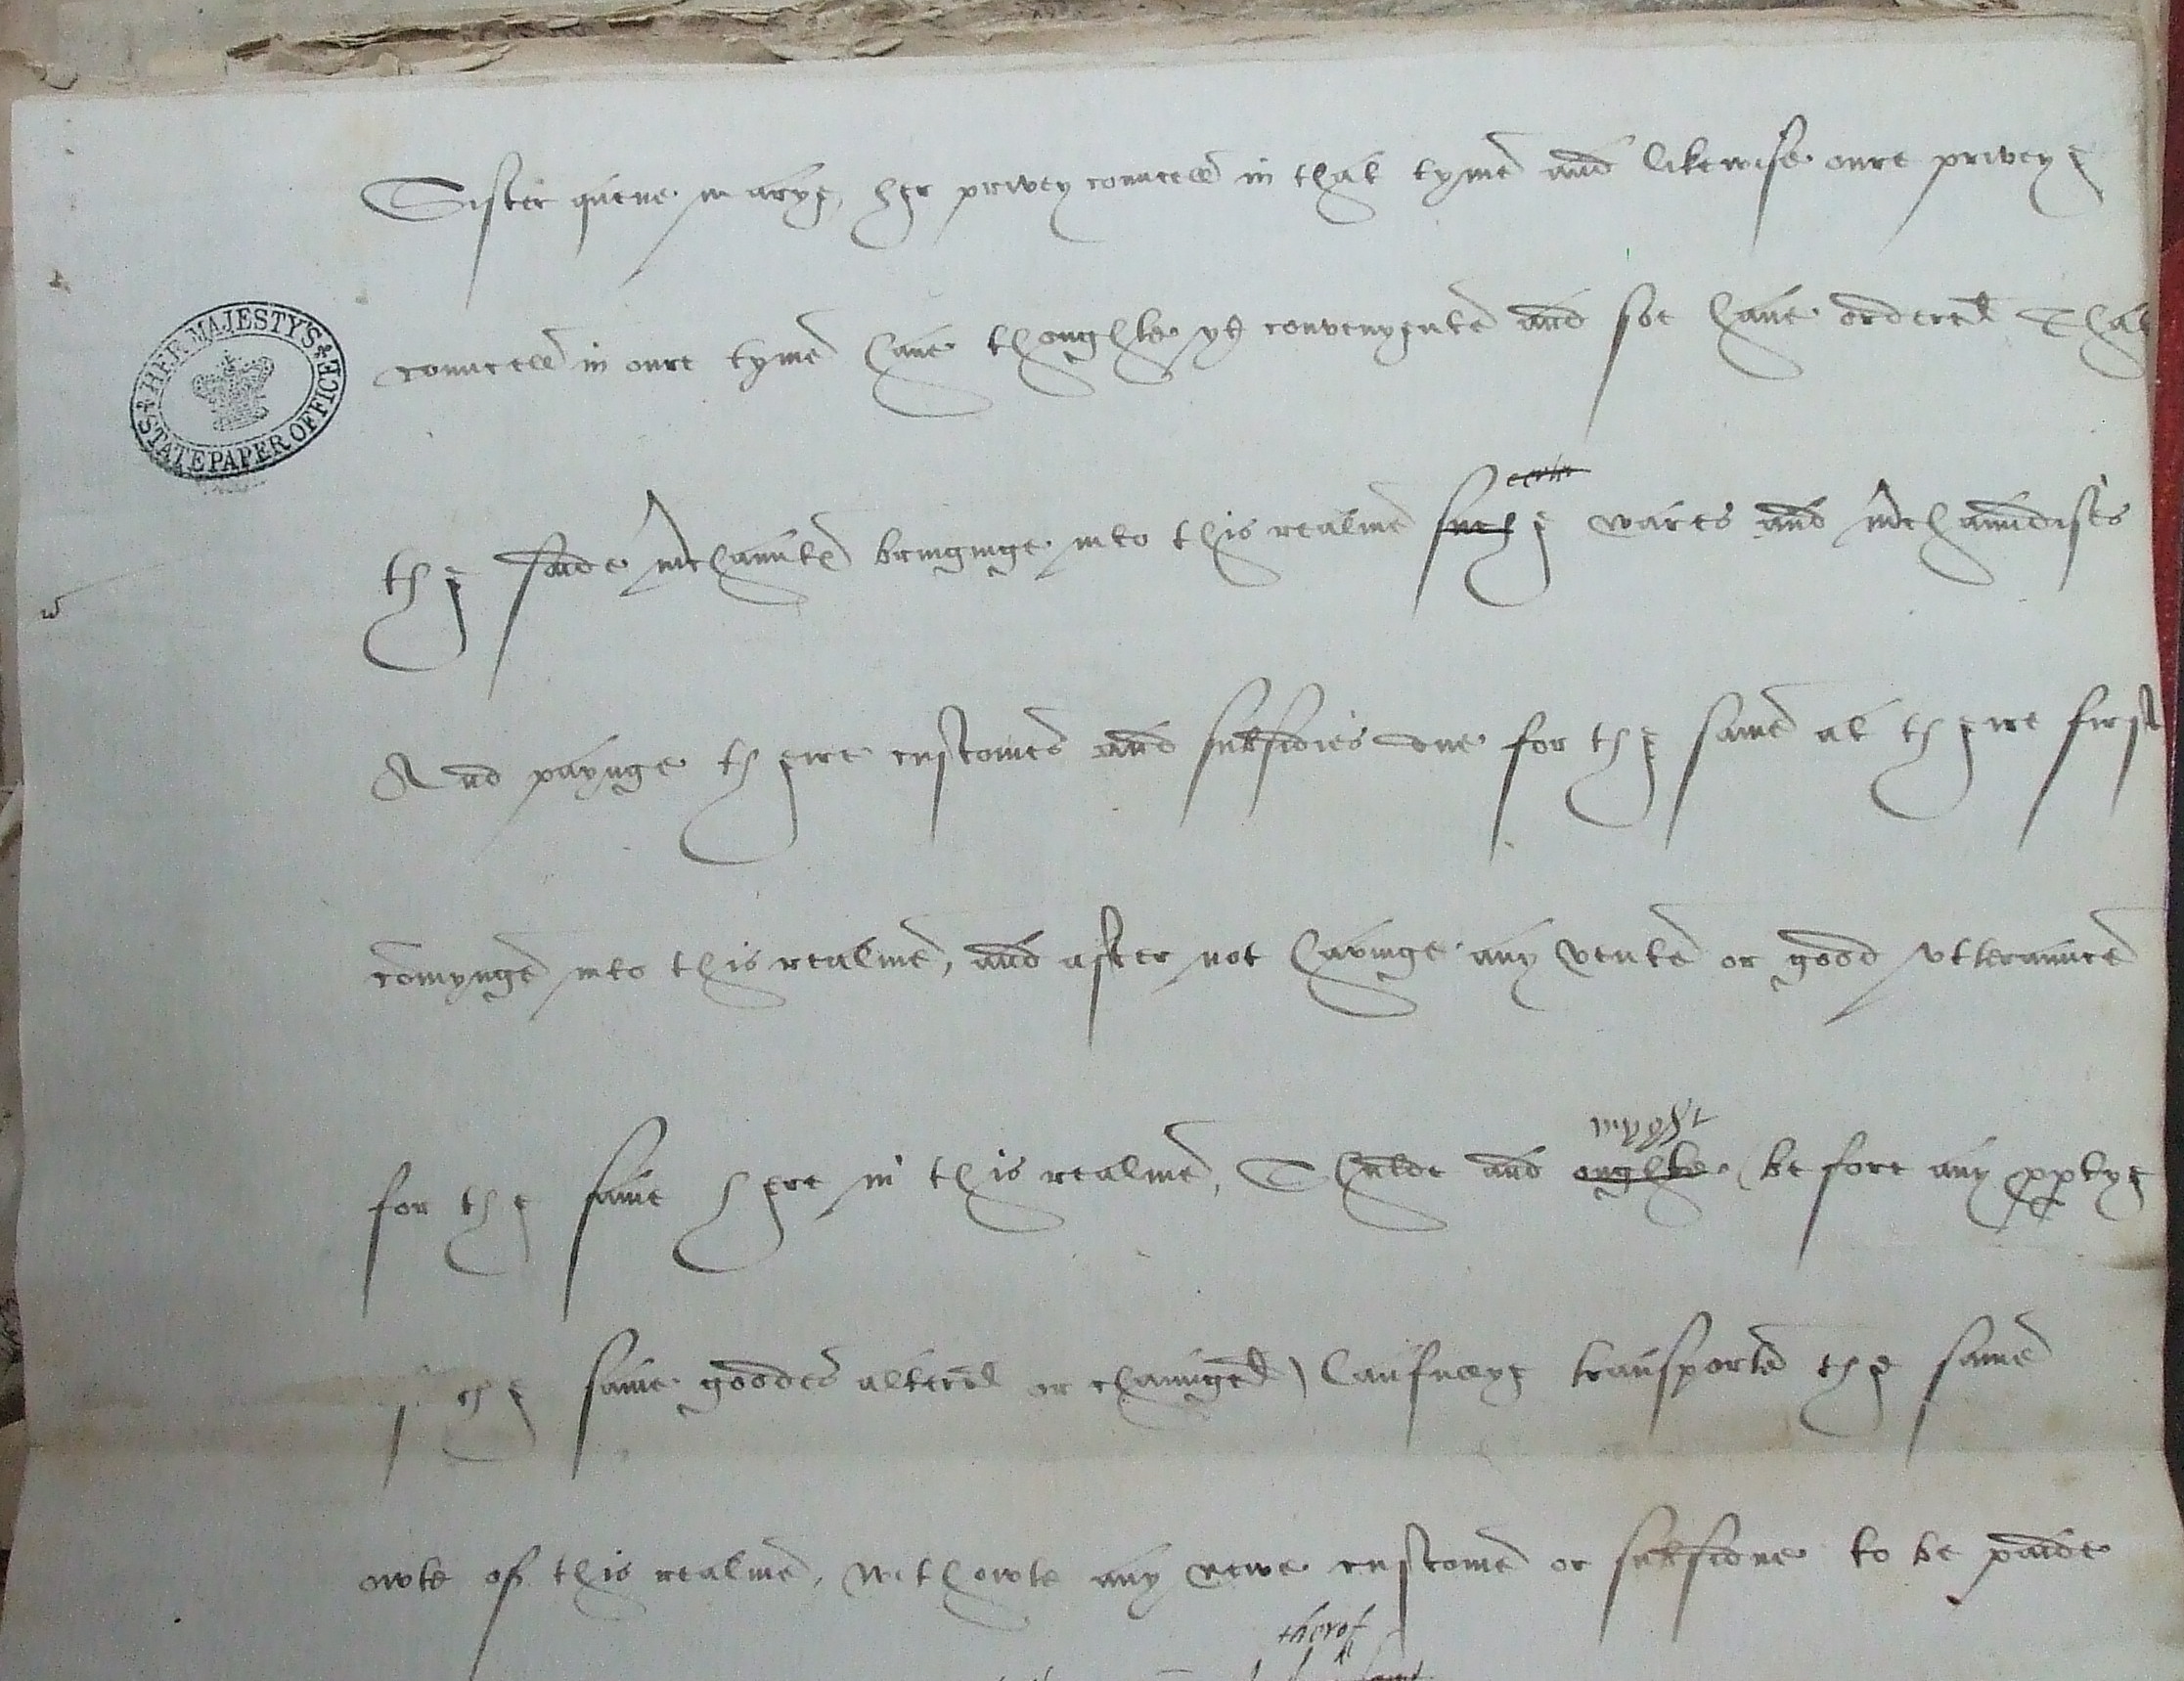 Sister quene marye, her privey councell in that tyme and likewise oure priveye
HER MAJESTY'S STATE PAPER OFFICE
councell in oure tyme have thoughte yt convenyente and soe have ordered That
the saide mchaunte bringinge into this realme suche wares and mchaundises
And payinge theire customes and subsidies due for the same at theire first
comynge into this realme, and after not havinge any vente or good utteraunce
myght
for the same here in this realme, Shulde and oughte (before any pptye
of the same goodes altered or chaunged) laufullye transporte the same
owte of this realme, Withowte any newe custome or subsidue to be paide
therof